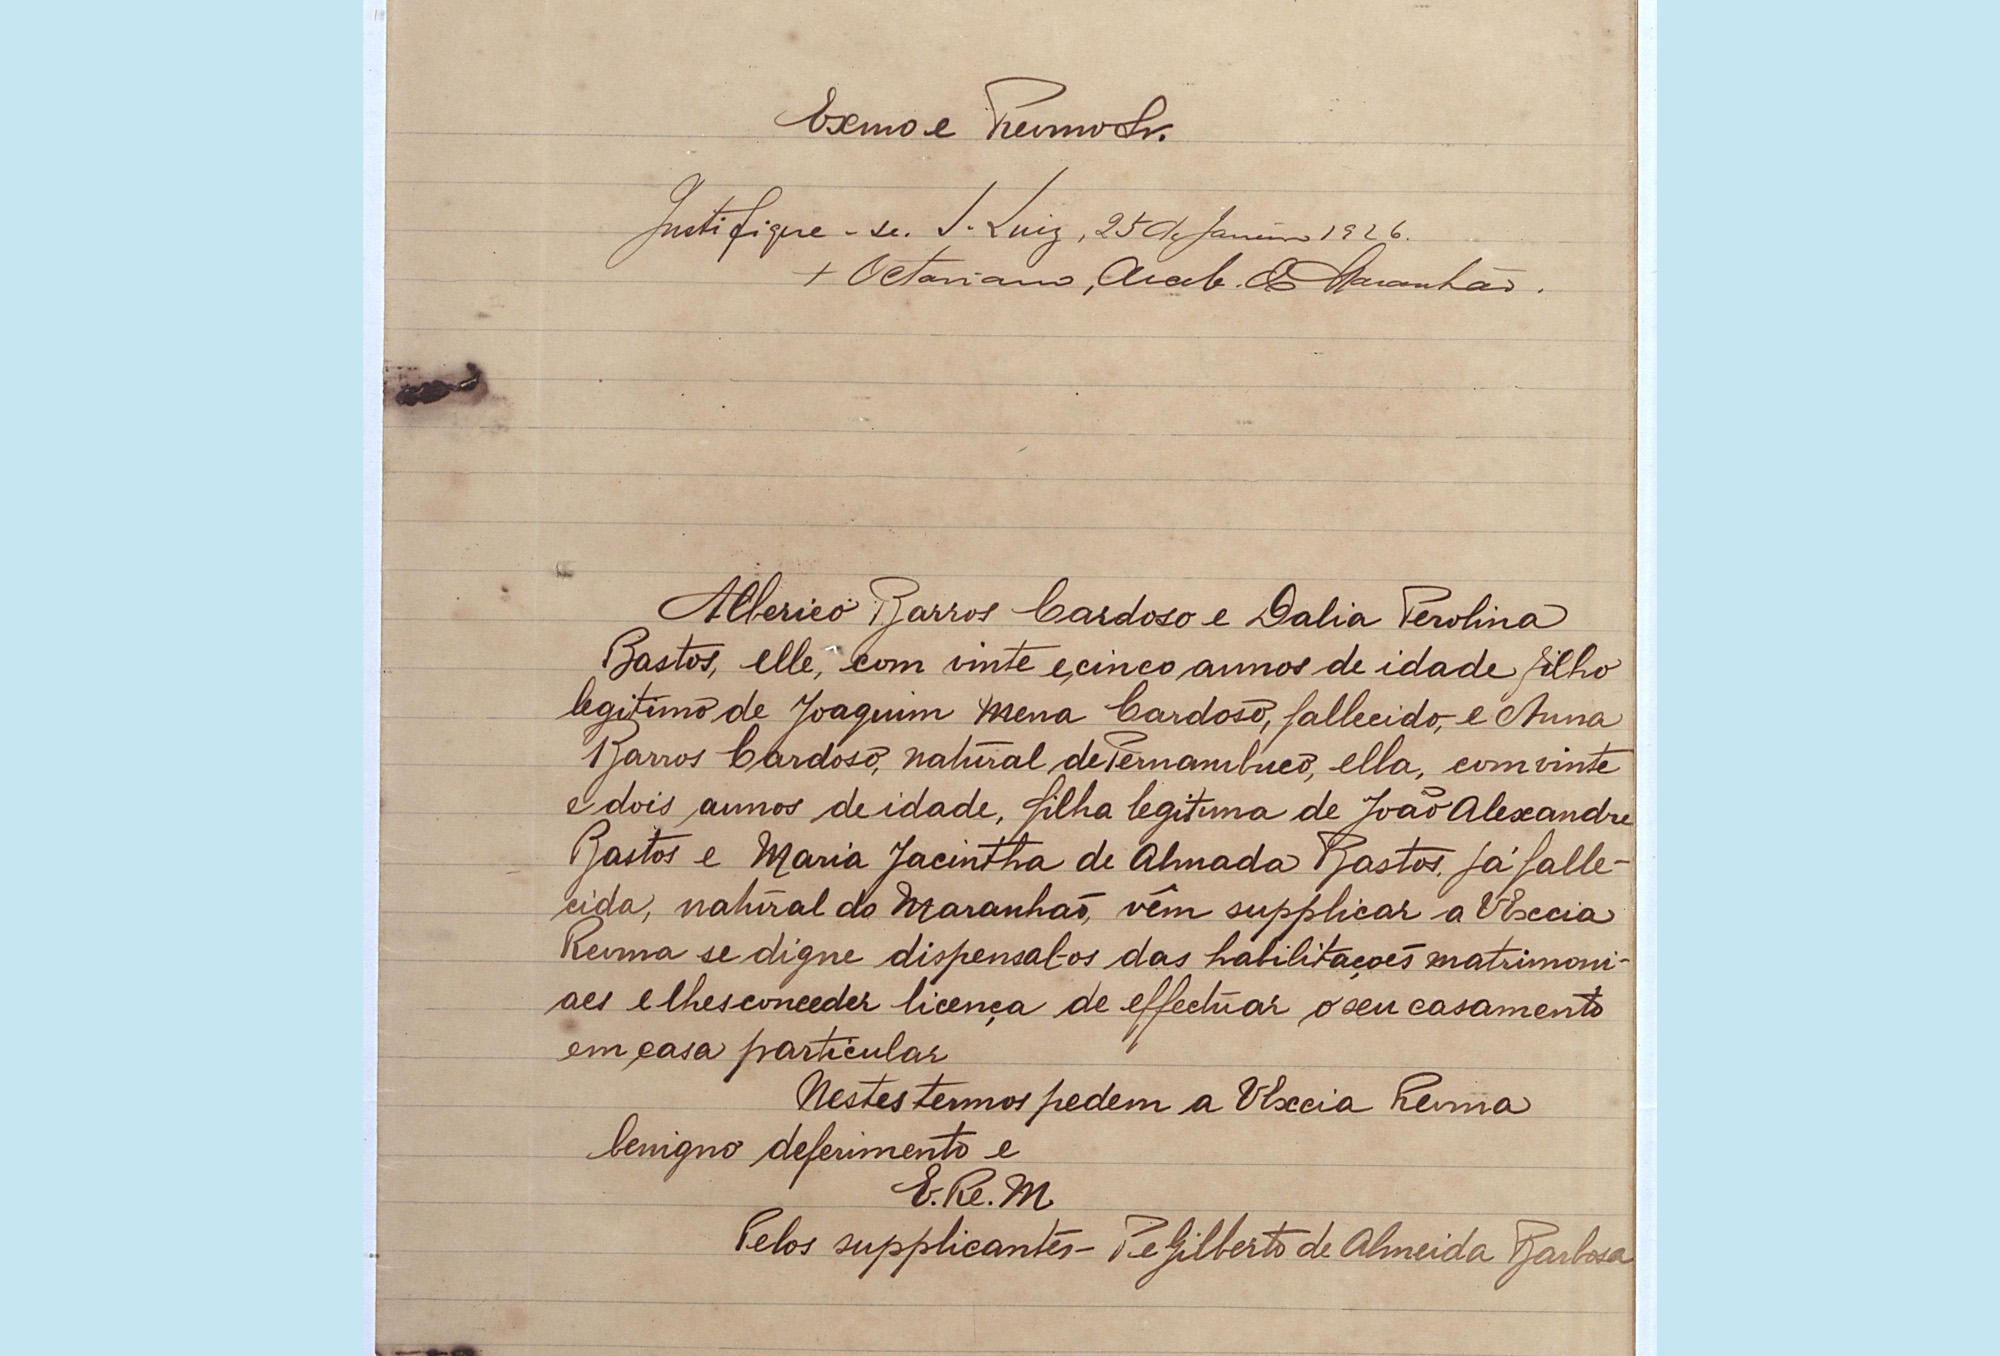 Exmo e Revmo Sr.
Justifique-se. S. Luiz, 25 de Janeiro 1926.
+ Octaviano, Arceb. do Maranhão.
Alberico Barros Cardoso e Dalia Perolina
Bastos, elle, com vinte e cinco annos de idade filho
legitimo de Joaquim Mena Cardoso, fallecido, e Anna
Barros Cardoso, natural de Pernambuco, ella, com vinte
e dois annos de idade, filha legitima de João Alexandre
Bastos e Maria Jacintha de Almada Bastos, já falle-
cida, natural do Maranhão, vêm supplicar a VExcia
Revma se digne dispensal-os das habilitações matrimoni-
aes e lhes conceder licença de effectuar o seu casamento
em casa particular
Nestes termos pedem a VExcia Revma
benigno deferimento e
E. Re. M
Pelos supplicantes- Pe Gilberto de Almeida Barbosa